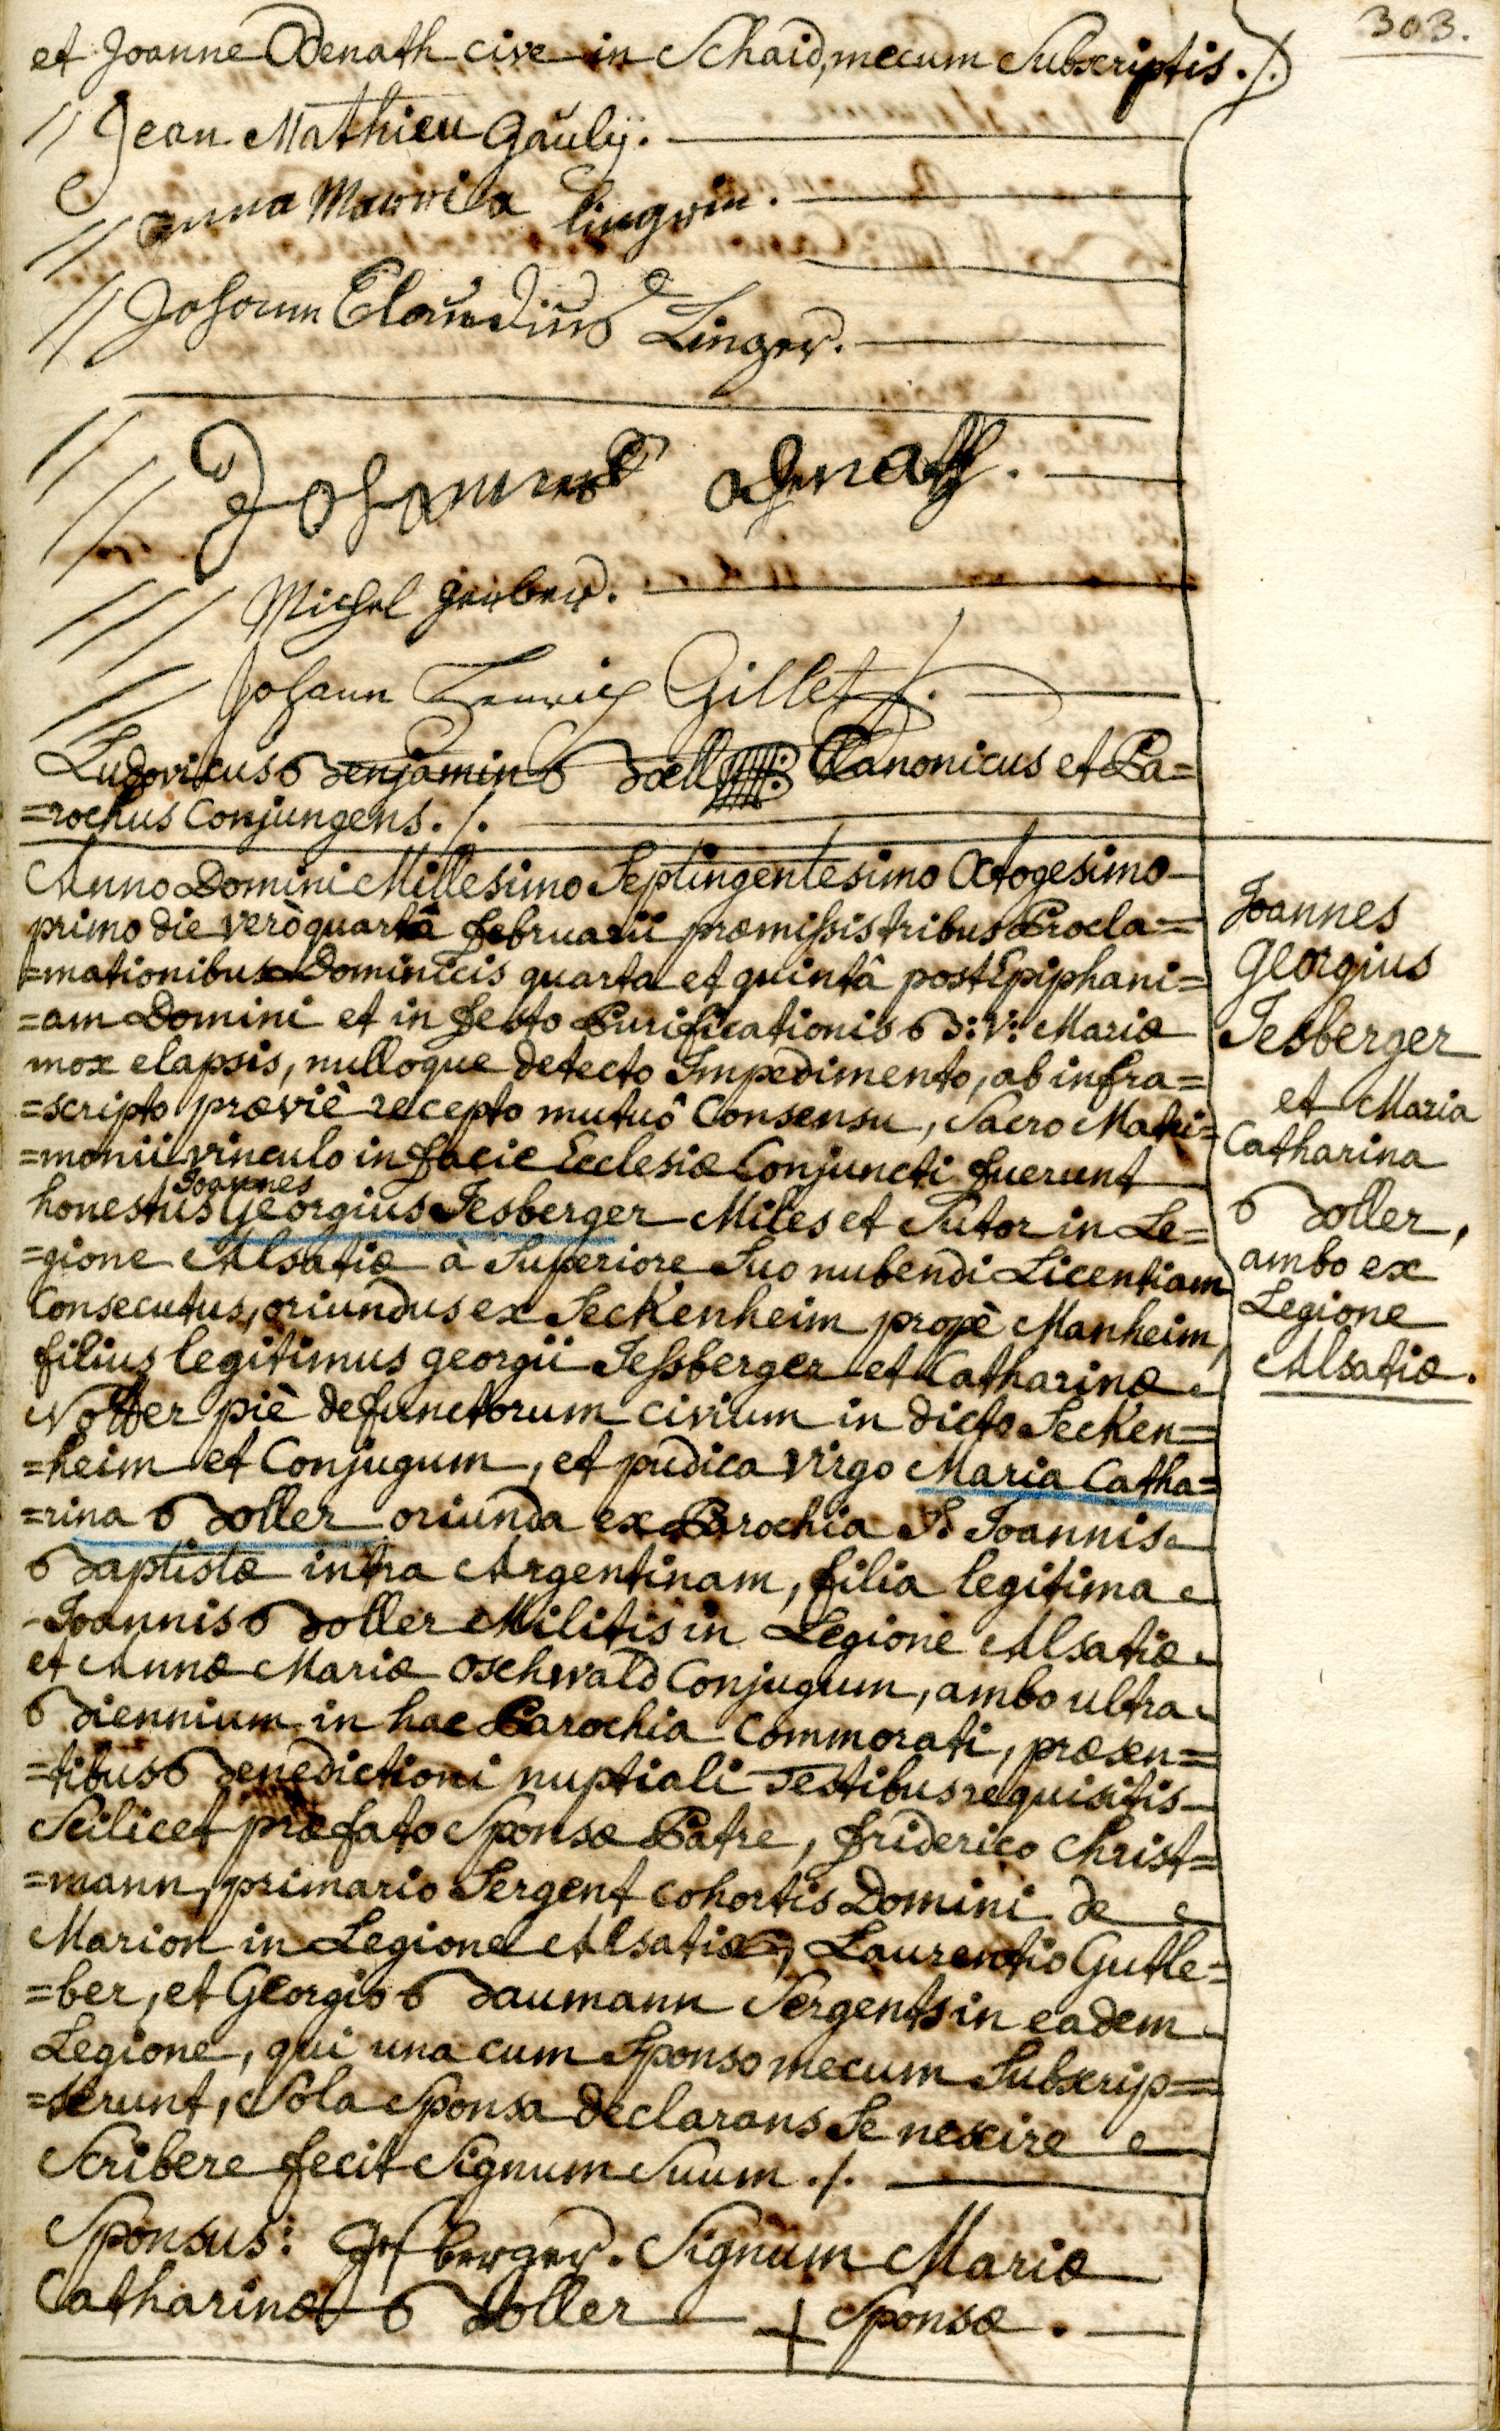 303.
et Joanne Odenath cive in Schaid, mecum Subscriptis ./.
Jean Mathieu Gäulÿ.
anna Marria lingrin.
Johann Claudius Linger.
Johannes odenath.
Michel gerber.
Johann Henrich Gillet.
Ludovicus Benjamin Boell Canonicus et Pa=
=rochus Conjungens ./.
Anno Domini Millesimo Septingentesimo Octogesimo
primo die verò quartâ februarii præmissis tribus Procla=
=mationibus Dominicis quarta et quintâ post Epiphani=
=am Domini et in festo Purificationis B: V: Mariæ
mox elapsis, nulloque detecto Impedimento, ab infra=
=scripto præviè recepto mutuô Consensu, Sacro Matri=
=monii vinculo in facie Ecclesiæ Conjuncti fuerunt
Joannes
honestus Georgius Jesberger Miles et Sutor in Le=
=gione Alsatiæ à Superiore Suo nubendi Licentiam
Consecutus, oriundus ex Seckenheim propè Manheim,
filius legitimus georgii Jessberger et Catharinæ
Volter piè defunctorum civium in dicto Secken=
=heim et Conjugum, et pudica virgo Maria Catha=
=rina Boller oriunda ex Parochia S. Joannis
Baptistæ intra Argentinam, filia legitima
Joannis Boller Militis in Legione Alsatiæ
et Annæ Mariæ Oschwald Conjugum, ambo ultra
Biennium in hac Parochia Commorati, præsen=
=tibus Benedictioni nuptiali Testibus requisitis
Scilicet præfato Sponsæ Patre, friderico Christ=
=mann, primario Sergent cohortis Domini de
Marion in Legione Alsatiæ, Laurentio Gutle=
=ber, et Georgio Baumann Sergents in eadem
Legione, qui una cum Sponso mecum Subscrip=
=serunt, Sola Sponsa declarans Se nescire
Scribere fecit Signum Suum ./.
Sponsus: Jesberger. Signum Mariæ
Catharinæ Boller + Sponsæ.
Joannes
Georgius
Jesberger
et Maria
Catharina
Boller,
ambo ex
Legione
Alsatiæ.